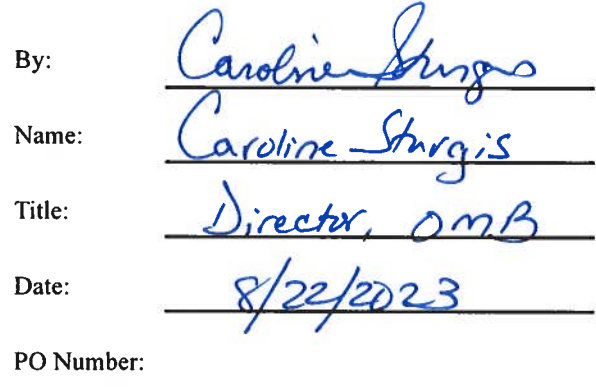 By: Caroline Sturgis
Name: Caroline Sturgis
Title: Director, OMB
Date: 8/22/2023
PO Number: